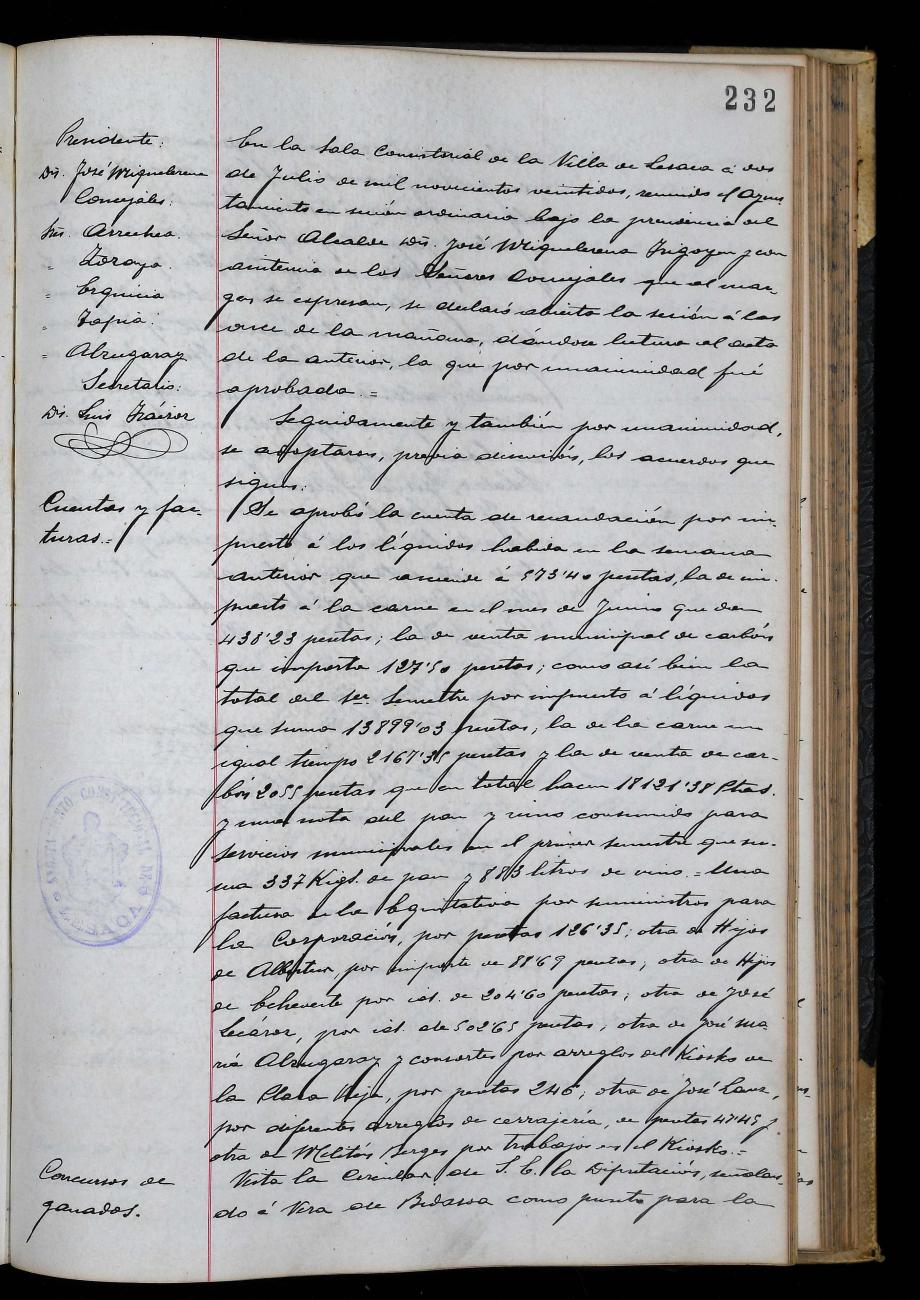 232
Presidente:
Dn. José Miguelerena
Concejales:
Sres. Arrechea.
" Zoraya.
" Ergui­cia
" Tapia.
" Alzugaray
Secretario:
Dn. Luis
En la Sala Consistorial de la Villa de Lesaca á dos
de Julio de mil novecientos veintidos, reunido el Ayun
tamiento en sesión ordinaria bajo la presidencia del
Señor Alcalde Dn. José Miguelerena Irigoyen y con
asistencia de los Señores Concejales que al mar
gen se espresan, se declaró abierta la sesión á las
once de la mañana, dándose lectura al acta
de la anterior, la que por unanimidad fué
aprobada.=
Seguidamente y también por unanimidad,
se adoptaron, previa discusión, los acuerdos que
siguen:
Cuentas y fac-
turas.=
Se aprobó la cuenta de recaudación por im-
puesto á los líquidos habida en la semana
anterior que asciende á 573'40 pesetas, la de im-
puesto á la carne en el mes de Junio que dan
438'23 pesetas; la de venta municipal de carbón
que importa 127'50 pesetas; como así bien la
total del 1er. Semestre por impuesto á líquidos
que suma 13899'03 pesetas, la de la carne en
igual tiempo 2167'35 pesetas y la de venta de car-
bón 2055 pesetas que en total hacen 18121'38 Ptas.
y una nota del pan y vino consumido para
servicios municipales en el primer semestre que su-
ma 337 Kigs. de pan y 883 litros de vino.= Una
factura de la Equitativa por suministros para
la Corporación, por pesetas 126'35; otra de Hijos
de Albistur, por importe de 88'69 pesetas; otra de Hijos
de Echeverte por id. de 204'60 pesetas; otra de José
Lecároz, por id. de 502'65 pesetas; otra de José Ma
ría Alzugaray y consortes por arreglos del Kiosko de
la Plaza Vieja, por pesetas 246; otra de José Lanz,
por diferentes arreglos de cerrajería, de pesetas 47'45 y
otra de Melitón Berges por trabajos en el Kiosko.=
Concursos de
ganados.
Vista la Circular de S. E. la Diputación, señalan-
do á Vera de Bidasoa como punto para la
AYUNTAMIENTO CONSTITUCIONAL DE